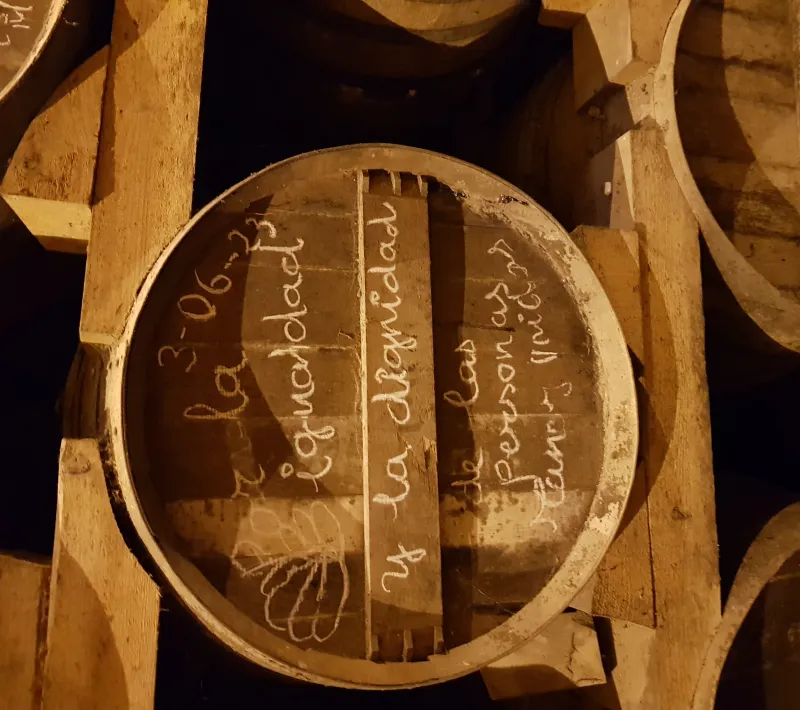 3-06-23
Por la
igualdad
y la dignidad
de las
personas